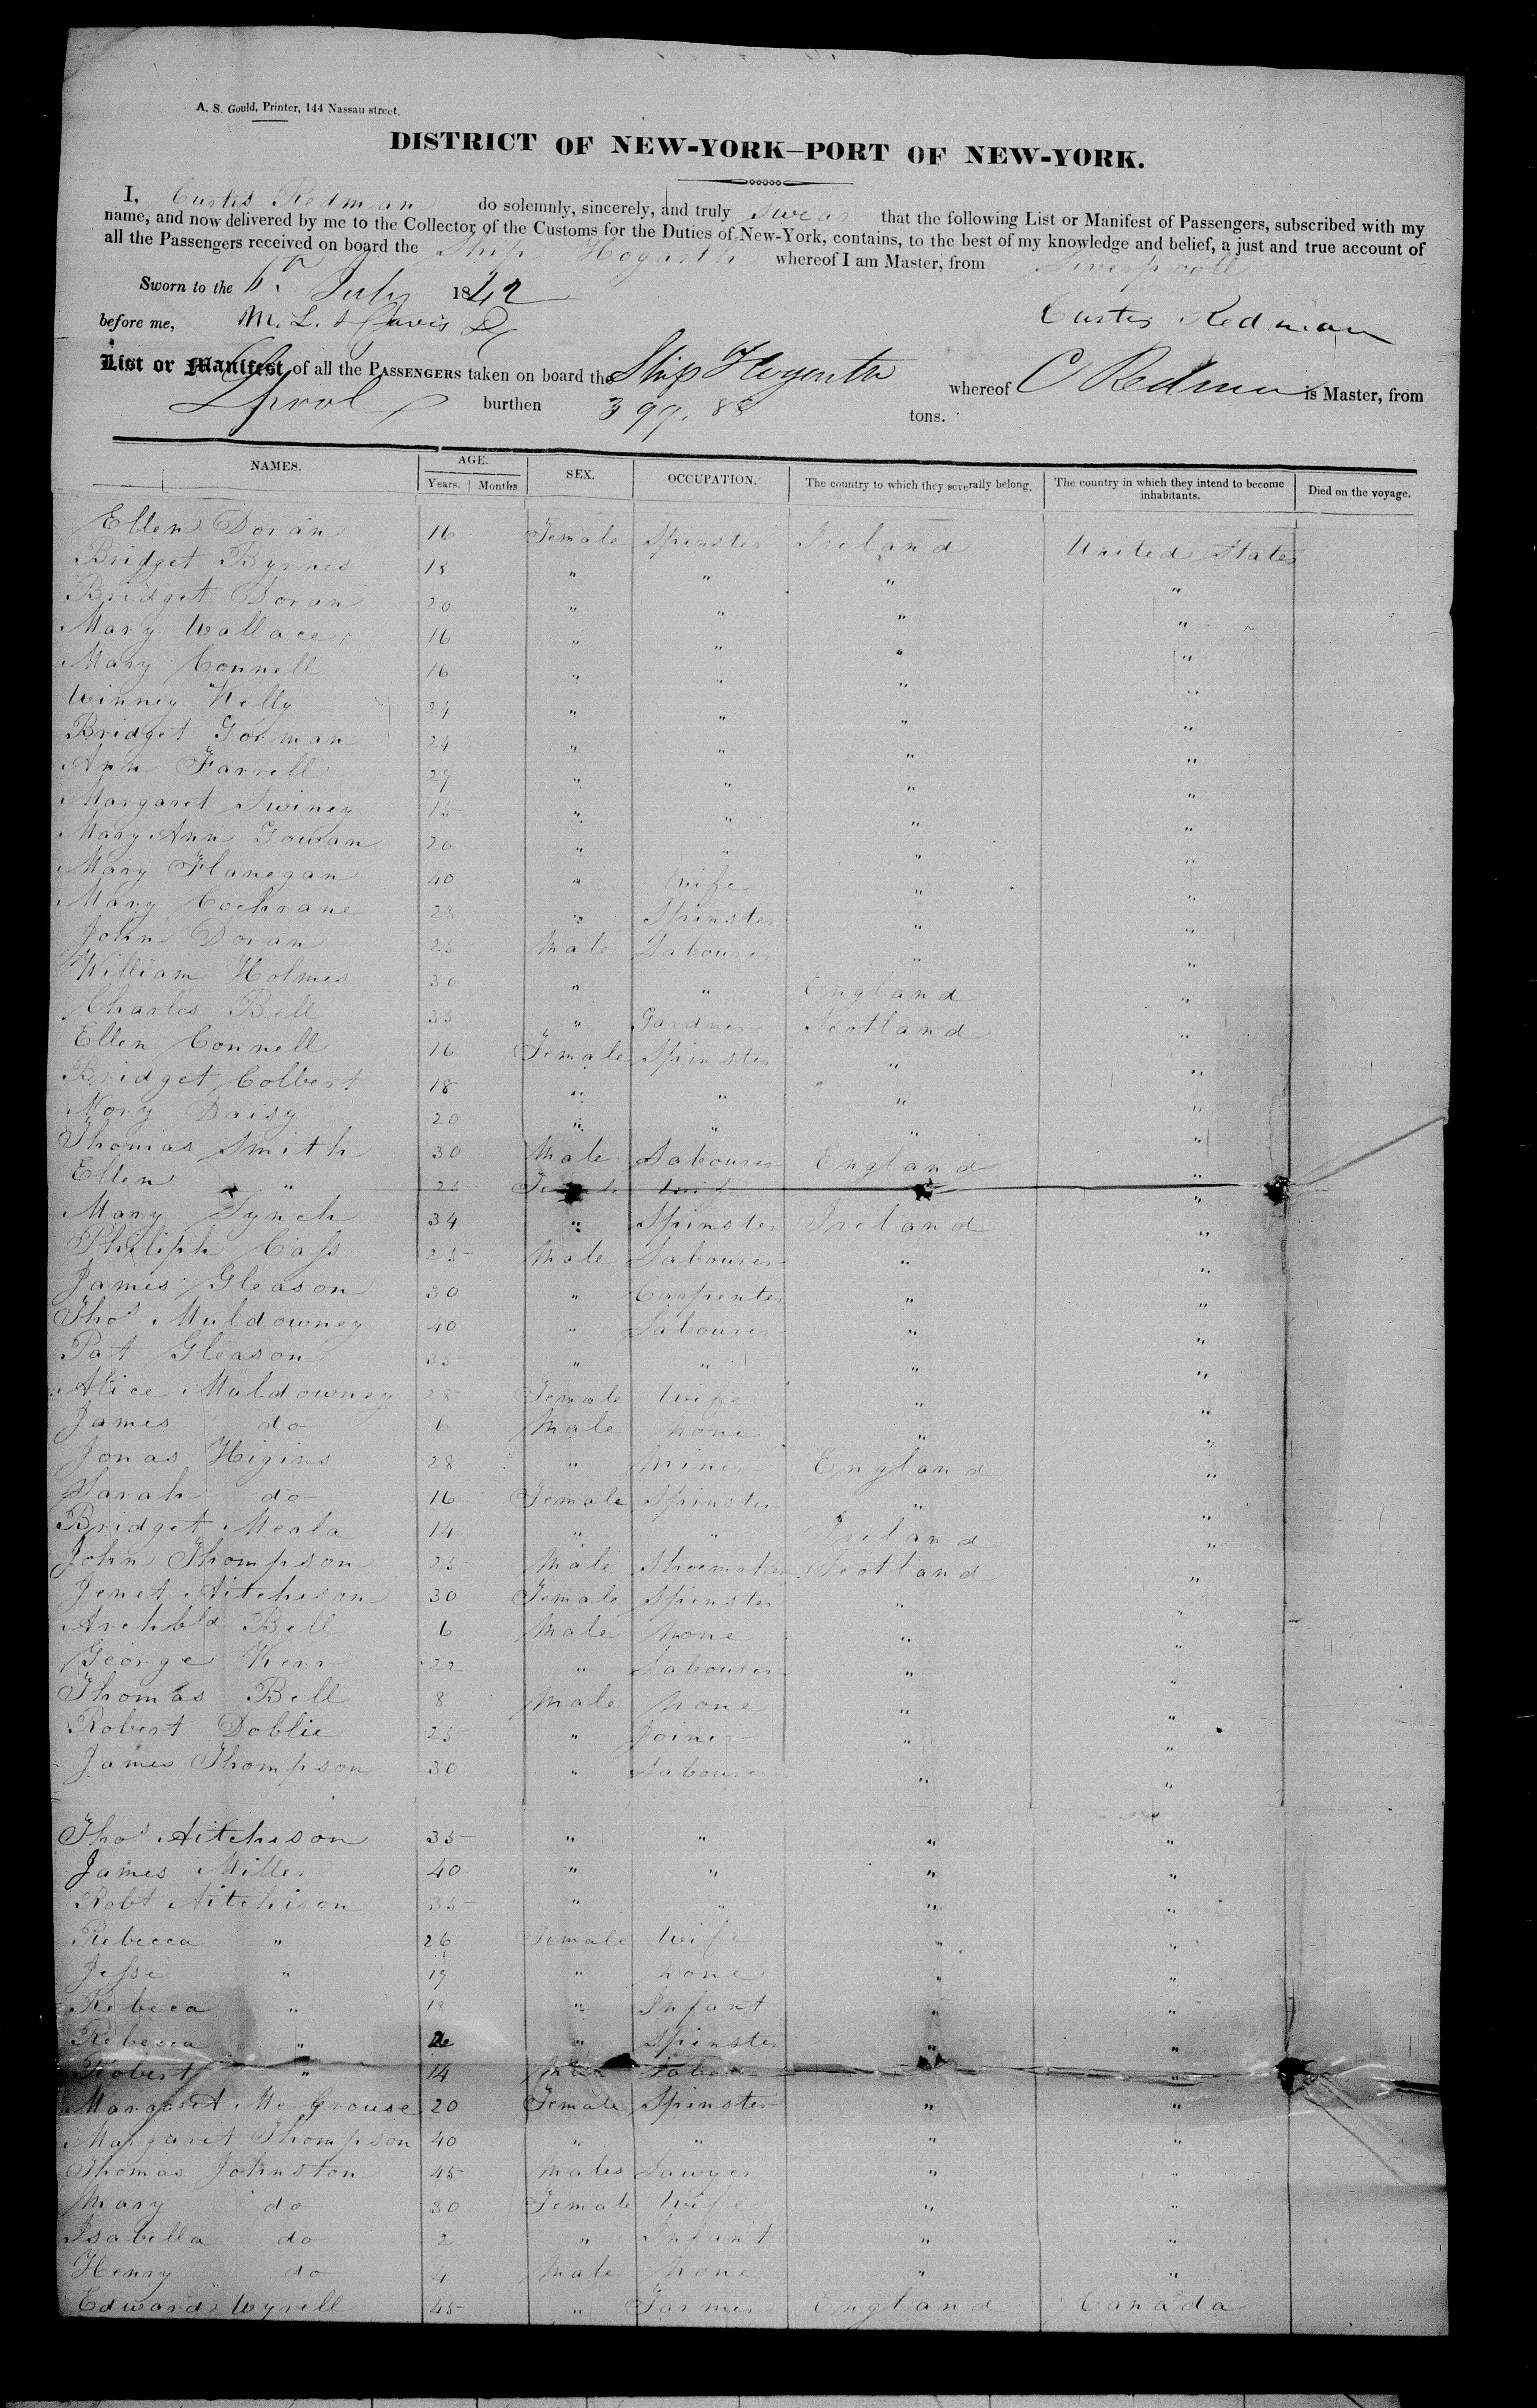 A. S. Gould, Printer, 144 Nassau street.
DISTRICT OF NEW-YORK—PORT OF NEW-YORK.
I, Curtis Redman do solemnly, sincerely, and truly swear that the following List or Manifest of Passengers, subscribed with my
name, and now delivered by me to the Collector of the Customs for the Duties of New-York, contains, to the best of my knowledge and belief, a just and true account of
all the Passengers received on board the Ship Hogarth whereof I am Master, from Liverpooll
Sworn to the July 1842
before me, M. L. Davis Curtis Redman
List or Manifest of all the PASSENGERS taken on board the Ship Hogarth whereof C Redman is Master, from
Lpool burthen 399.88 tons.
NAMES. AGE. Years. Months. SEX. OCCUPATION. The country to which they severally belong. The country in which they intend to become inhabitants. Died on the voyage.
Ellen Doran 16 Female Spinster Ireland United States
Bridget Byrnes 18 " " " "
Bridget Doran 20 " " " "
Mary Wallace 16 " " " "
Mary Connell 16 " " " "
Winney Welly 24 " " " "
Bridget Gorman 24 " " " "
Ann Farrell 27 " " " "
Margaret Swiney 15 " " " "
Mary Ann Gowan 20 " " " "
Mary Flanegan 40 " Wife " "
Mary Cochrane 23 " Spinster " "
John Doran 25 Male Labourer " "
William Holmes 30 " " England "
Charles Bell 35 " Gardner Scotland "
Ellen Connell 16 Female Spinster " "
Bridget Colbert 18 " " " "
Nory Daisy 20 " " " "
Thomas Smith 30 Male Labourer England "
Ellen " 25 Female Wife "
Mary Lynch 34 " Spinster Ireland "
Philiph Cass 25 Male Labourer " "
James Gleason 30 " Carpenter " "
Thos Muldowney 40 " Labourer " "
Pat Gleason 35 " " " "
Alice Muldowney 28 Female Wife " "
James do 6 Male None " "
Jonas Higins 28 " Miner England "
Sarah do 16 Female Spinster " "
Bridget Meala 14 " " Ireland "
John Thompson 25 Male Shoemaker Scotland "
Jenet Aitcheson 30 Female Spinster " "
Archbld Bell 6 Male None " "
George Kerr 22 " Labourer " "
Thomas Bell 8 Male None " "
Robert Doblie 25 " Joiner " "
James Thompson 30 " Labourer " "
Thos Aitchison 35 " " " "
James Miller 40 " " " "
Robt Aitchison 35 " " " "
Rebecca " 26 Female Wife " "
Jesse " 17 " None " "
Rebeca " 18 " Infant " "
Rebecca " " Spinster " "
Robert " 14 Male "
Margaret McGrouse 20 Female Spinster " "
Margaret Thompson 40 " " " "
Thomas Johnston 45 Males Sawyer " "
Mary do 30 Female Wife " "
Isabella do 2 " Infant " "
Henry do 4 Male None " "
Edward Wyrell 45 " Farmer England Canada